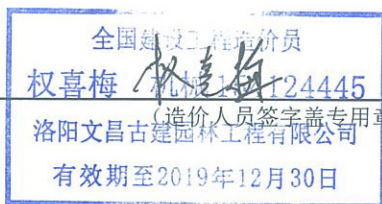 全国建设工程造价员
权喜梅 124445
权喜梅
(造价人员签字盖专用章
洛阳文昌古建园林工程有限公司
有效期至2019年12月30日